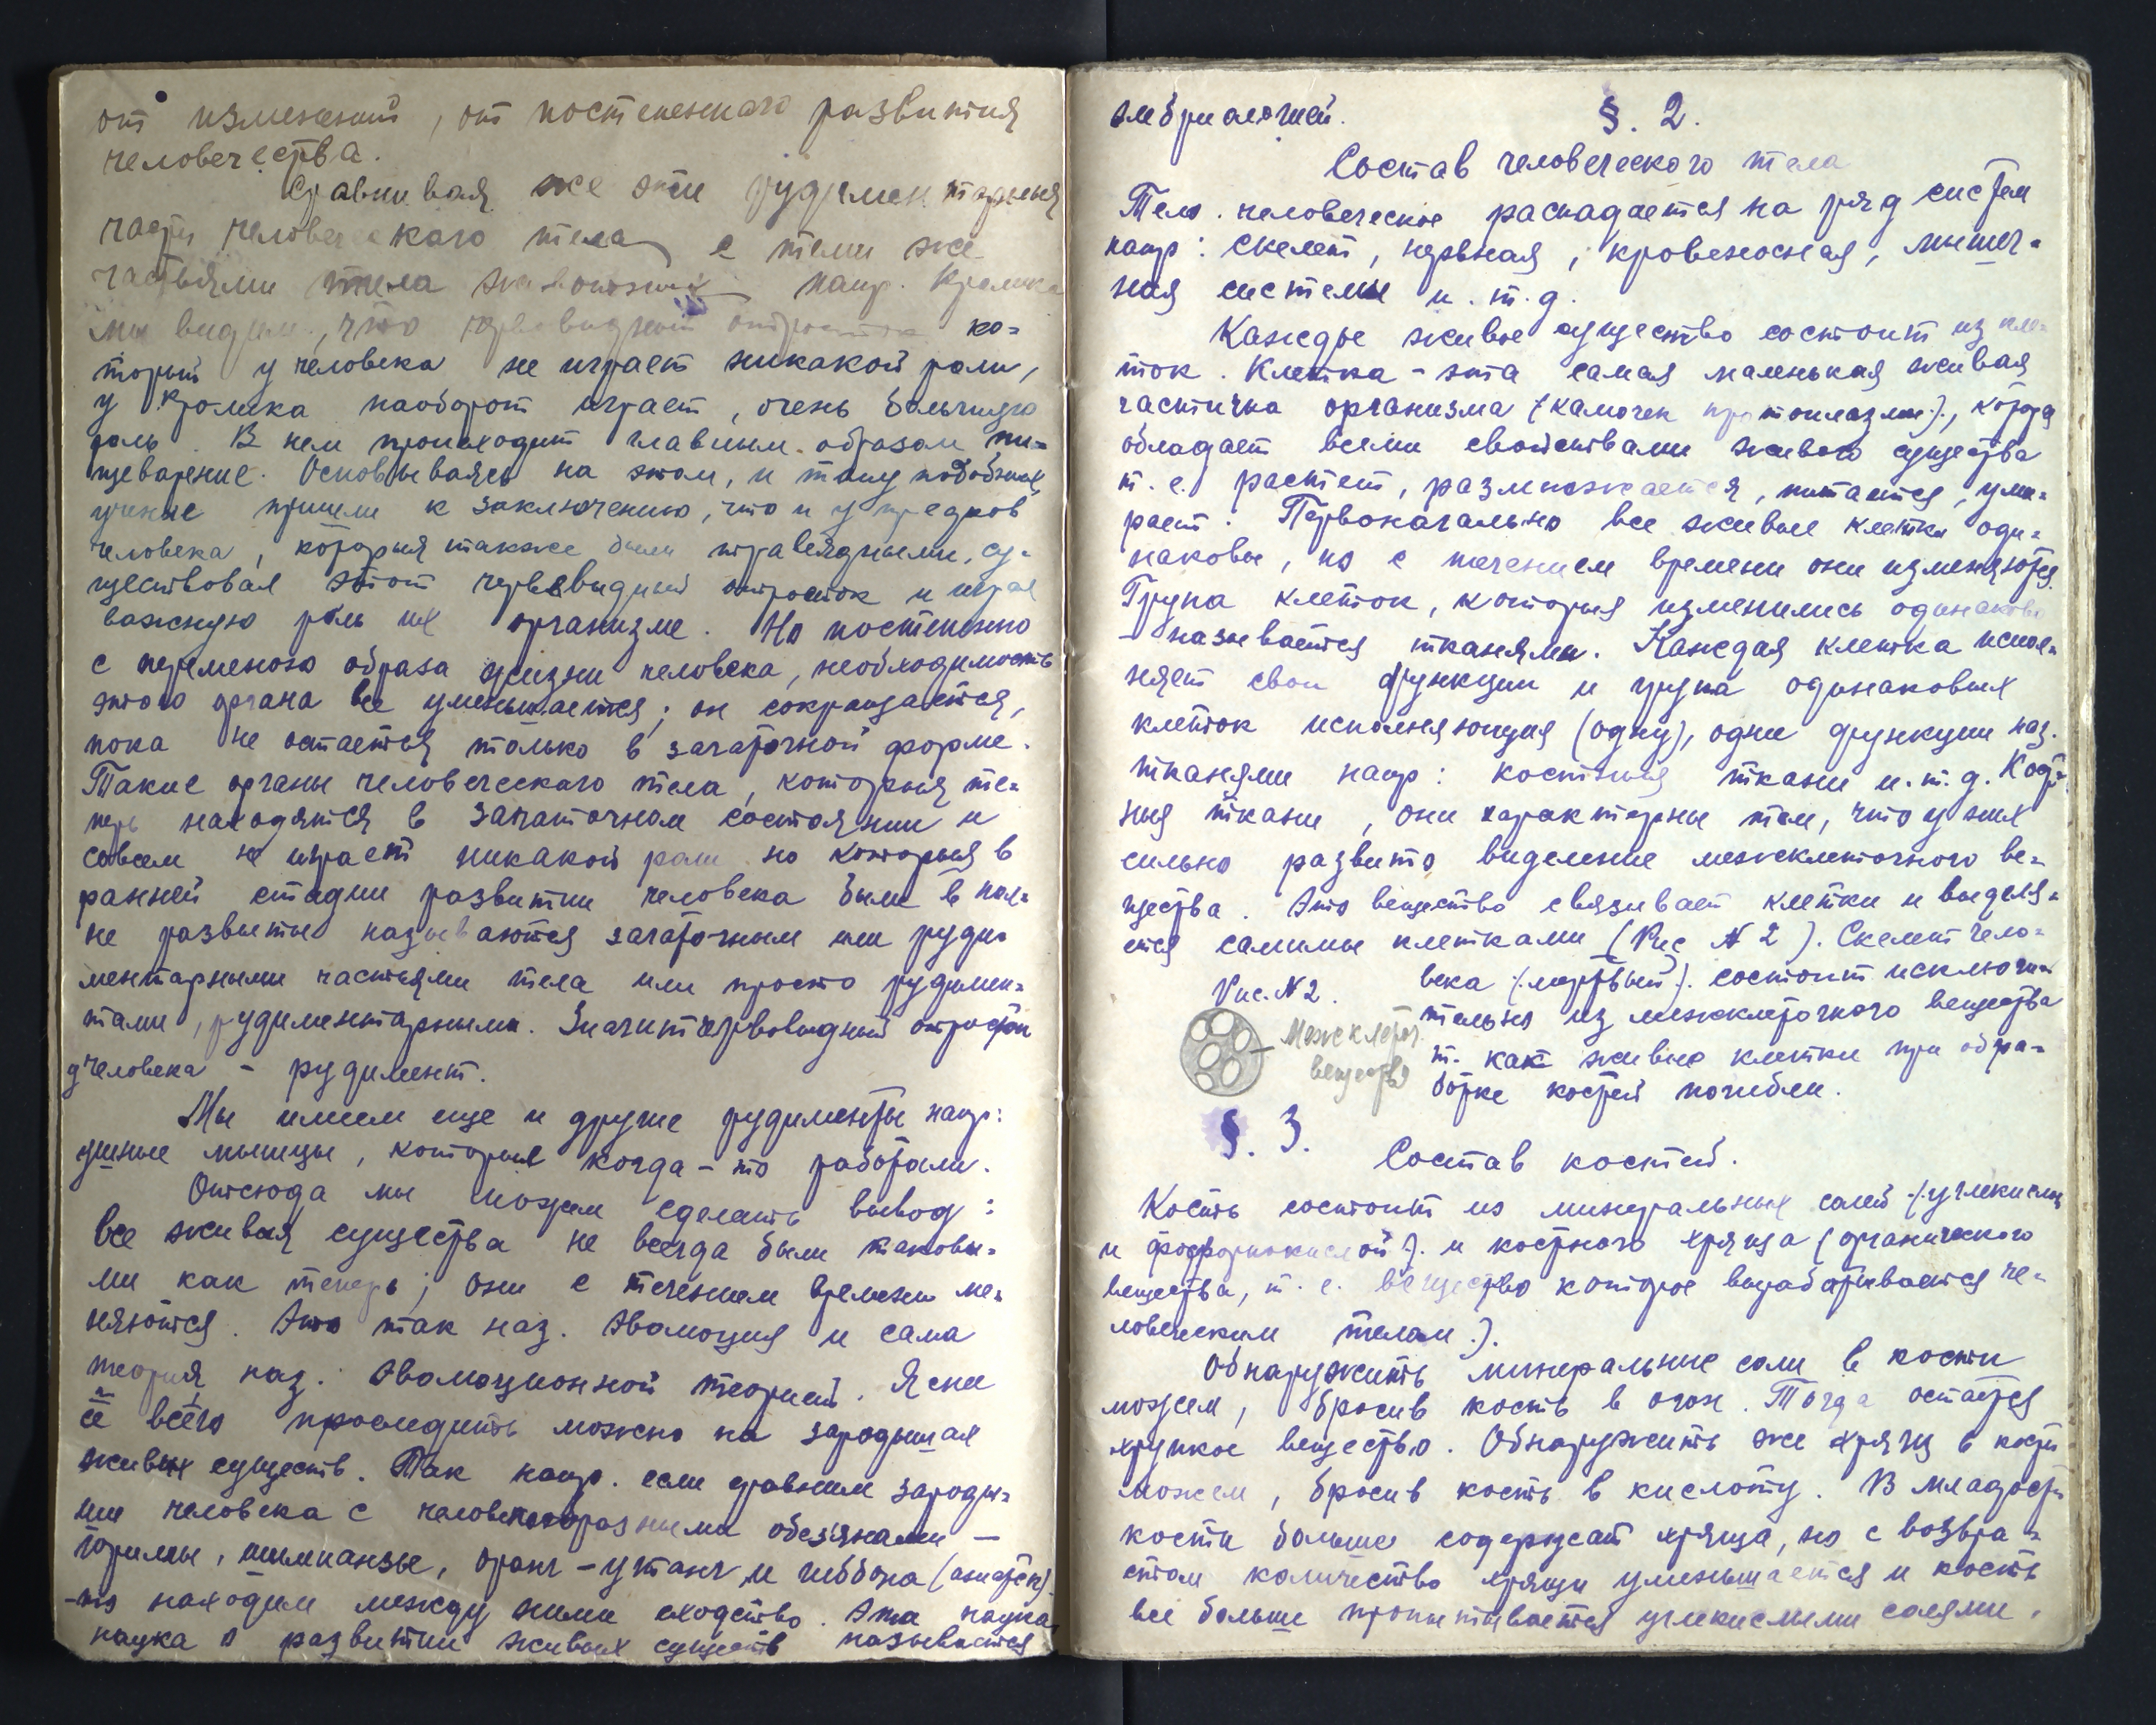 от изменений, от постепенного развития
человечества.
Сравнивая же эти рудиментарныя
части человеческаго тела с теми же
частьями тела животных напр. кролика
мы видим, что червевидный отросток ко=
торый у человека не играет никакой роли,
у кролика наоборот играет, очень большую
роль. В нем происходит главным образом пи=
щеварение. Основываясь на этом, и тому подобных
ученые пришли к заключению, что и у предков
человека, которыя также были травеядными, су=
ществовал этот червевидный отросток и играл
важную роль их организме. Но постепенно
с переменою образа жизни человека, необходимость
этого органа все уменьшается; он сокращается,
пока не остается только в зачаточной форме.
Такие органы человеческаго тела, которыя те=
перь находятся в зачаточном состоянии и
совсем не играет никакой роли но которыя в
ранней стадии развитии человека были в пол=
не развиты называются зачаточным или руди=
ментарными частьями тела или просто рудимен=
тами, рудиментарными. Значит червовидный отросток
у человека - рудимент.
Мы имеем еще и другие рудименты напр:
ушные мышцы, которыя когда-то работали.
Отсюда мы можем сделать вывод:
все живыя существа не всегда были таковы=
ми как теперь; они с течением времени ме=
няются. Это так наз. Эволюция и сама
теория наз. Эволюционной теорией. Ясне
е всего проследить можно на зародышах
живых существ. Так напр. если сравним зароды=
ши человека с человекообразными обезянами —
горилы, шимпанзы, оранг-утанг, и гиббона (
-то находим между ними сходство. Эта наука
наука о развитии живых существ называется
эмбриологией.
§. 2.
Состав человеческого тела
Тело человеческое распадается на ряд систем
напр: скелет, нервная, кровеносная, мышеч=
ная системы и. т. д.
Каждое живое существо состоит из кле=
ток. Клетка - эта самая маленькая живая
частичка организма (камочек протоплазмы), которая
обладает всеми свойствами живого существа
т. е. растет, размножается, питается, уми=
рает. Первоначально все живые клетки оди=
наковы, но с течением времени они изменяются.
Група клеток, которыя изменились одинаково
- называется тканями. Каждая клетка испол=
няет свои функции и група одинаковых
клеток исполняющия (одну), одни функции наз.
тканями напр: костныя ткани и. т. д. Кост=
ныя ткани, они характерны тем, что у них
сильно развито виделение межклеточного ве=
щества. Это вещество связывает клетки и выделя=
ется самими клетками (Рис № 2). Скелет чело=
века (мертвый) состоит исключи=
тельно из межклеточного вещества
т. как живые клетки при обра=
ботке костей погибли.
Рис. № 2.
Межклеточ.
вещества
§. 3.
Состав костей.
Кость состоит из минеральных солей (углекислой
и фосфорнокислой) и костного хряща (органического
вещества, т. е. вещество которое вырабатывается че=
ловеческим телом).
Обнаружить минеральные соли в кости
можем, бросив кость в огон. Тогда остается
хрупкое вещество. Обнаружить же хрящ в кости
можем, бросив кость в кислоту. В младости
кости больше содержат хряща, но с возвра=
стом количество хряща уменьшается и кость
все больше пропитывается углекислыми солями.